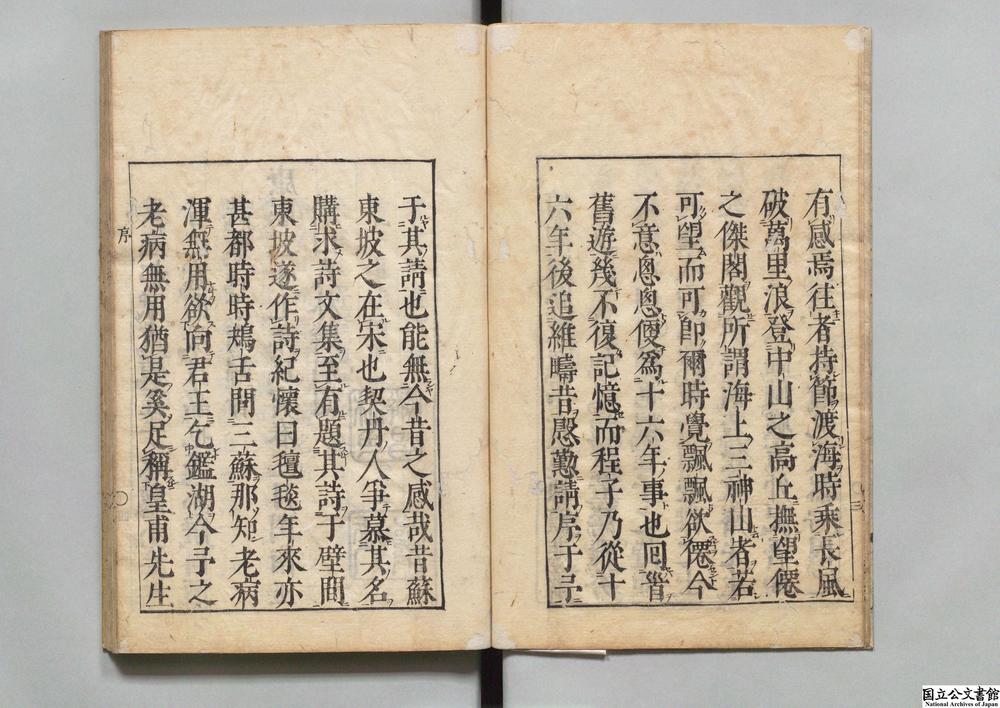 有感焉往者持節渡海時乘長風
破萬里浪登中山之高丘撫望僊
之傑閣觀所謂海上三神山者若
可望而可即爾時覺飄飄欲僊今
不意恖恖便為十六年事也囘𥇀
舊遊幾不復記憶而程子乃從十
六年後追維疇昔慇懃請序于予
于其請也能無今昔之感哉昔蘇
東坡之在宋也契丹人爭慕其名
購求詩文集至有題其詩于壁間
東坡遂作詩紀懷曰氊毯年來亦
甚都時時鴂舌問三蘇那知老病
渾無用欲向君王乞鑑湖今予之
老病無用猶是奚足稱皇甫先生
序
国立公文書館
National Archives of Japan